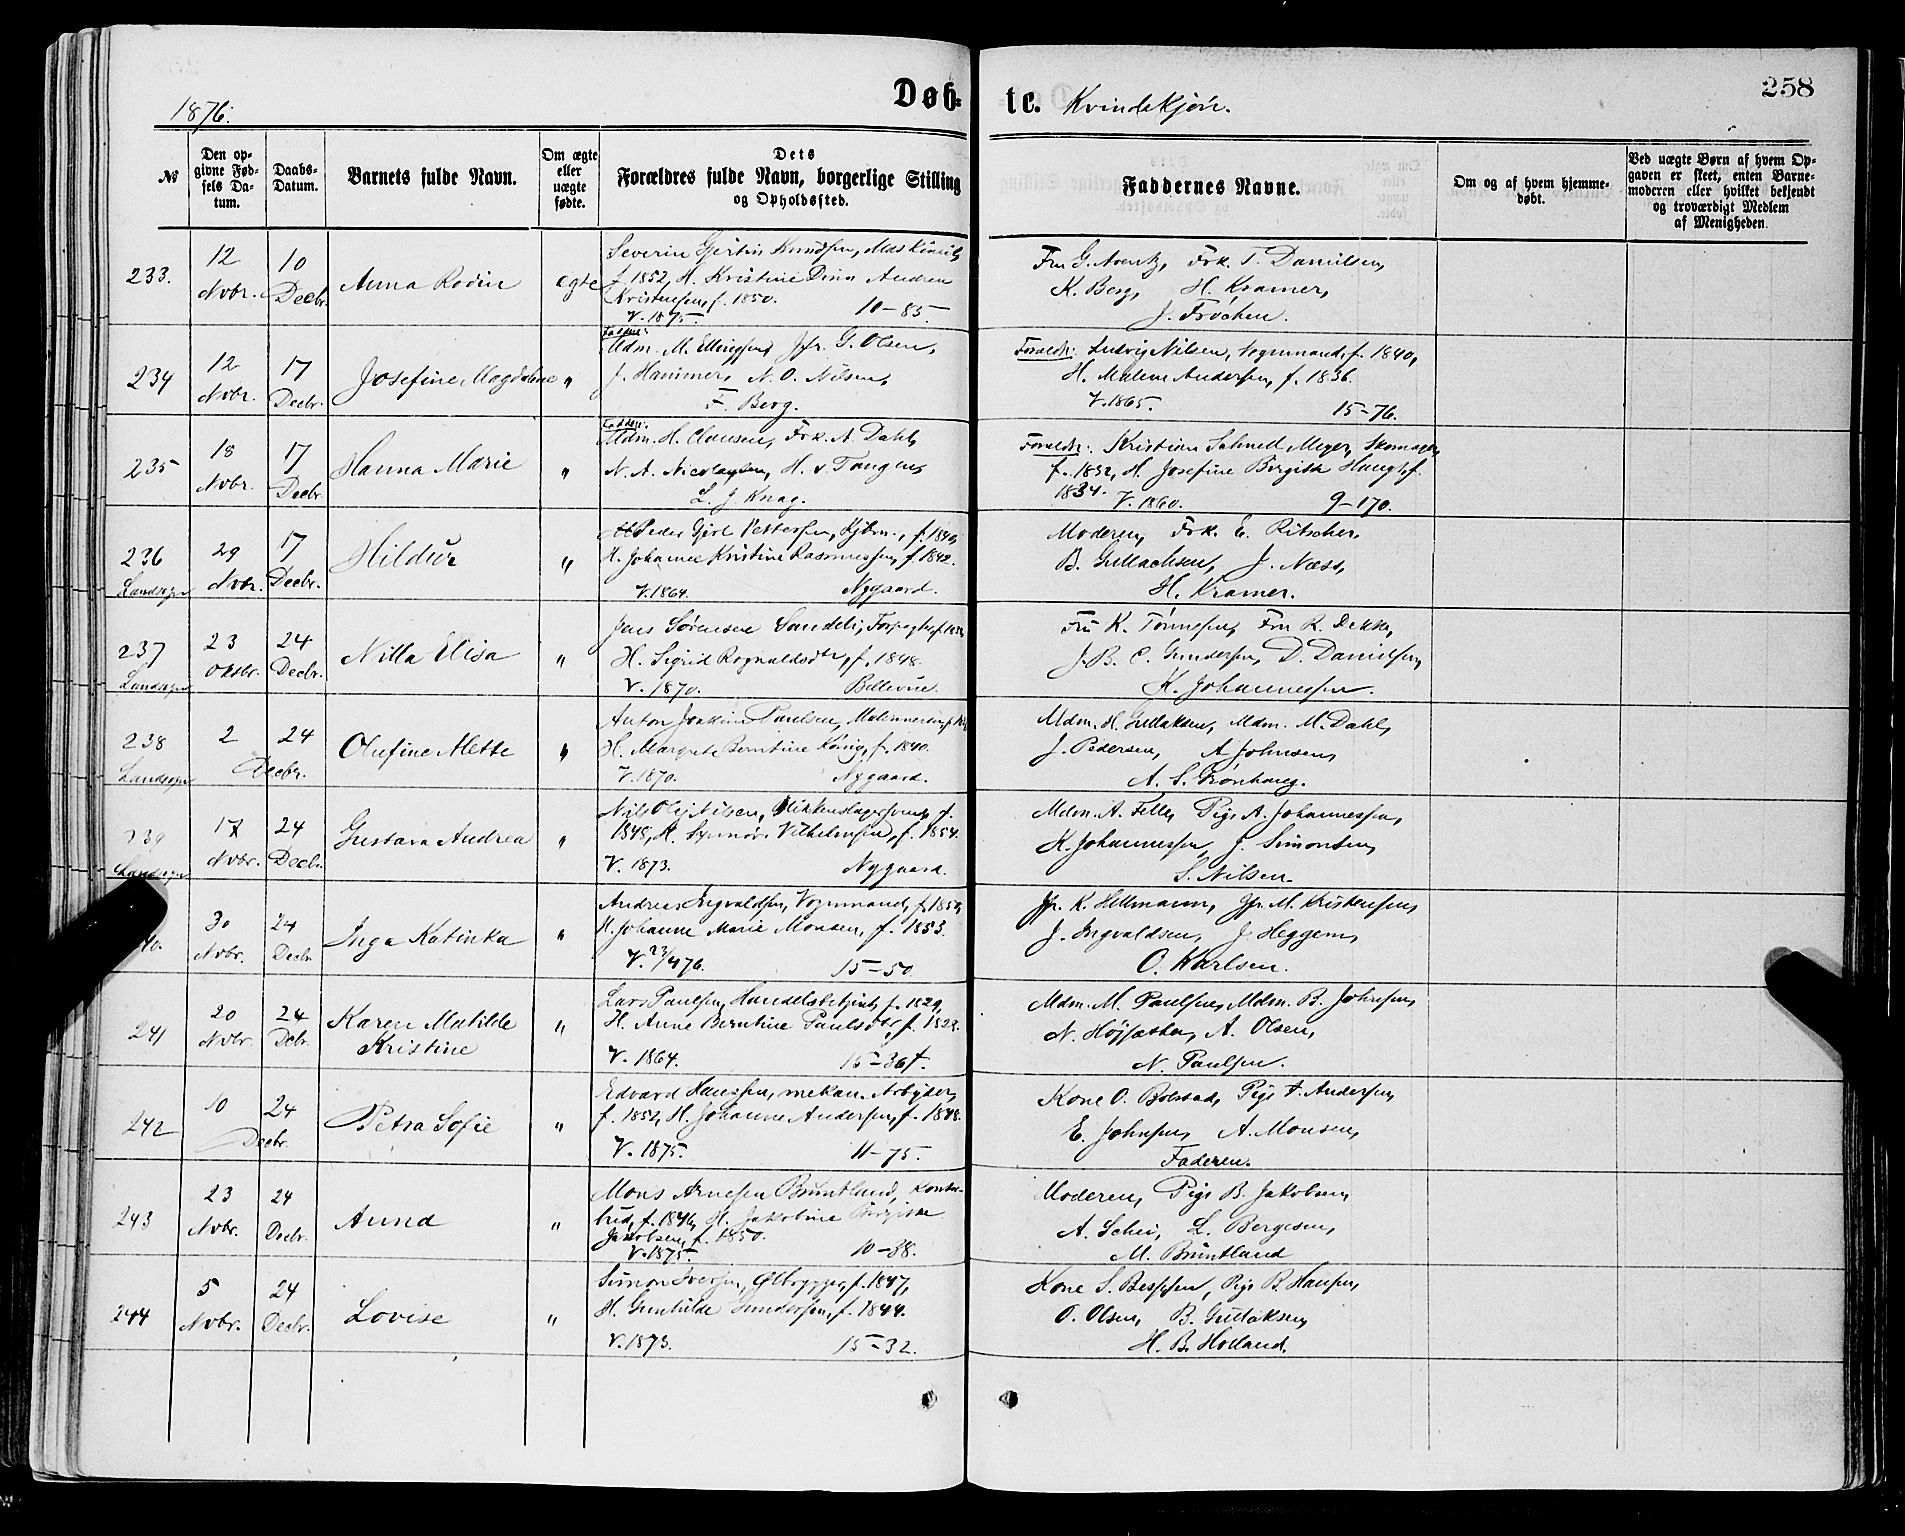 258
Døb-
te. Kvindekjön.
1876.
№
Den opgivne Fødsels Datum.
Daabs-Datum.
Barnets fulde Navn.
Om ægte eller uægte fødte.
Dets
Forældres fulde Navn, borgerlige Stilling
og Opholdssted.
Faddernes Navne.
Om og af hvem hjemmedøbt.
Ved uægte Børn af hvem Opgaven er skeet, enten Barnemoderen eller hvilket bekjendt og troværdigt Medlem af Menigheden.
233. 12 Novbr. 10 Decbr. Anna Rodin ægte
Severin Gjertin Knudsen, Maskinist,
f. 1852, H. Kristine Dina Andrea
Kristensen, f. 1850.
V. 1875. 10-85.
Fru G. Arentz, Frk. T. Danielsen,
K. Berg, H. Kramer,
J. Fröchen.
234 12 Novbr. 17 Decbr. Josefine Magdalene "
Faddere:
Mdm. M. Ellingsen, Jfr. G. Olsen,
J. Hammer, N. O. Nilsen,
F. Berg.
Foreldr: Ludvig Nilsen, Vognmand, f. 1840,
H. Malene Andersen, f. 1836.
V. 1865. 15-76.
235 18 Novbr. 17 Decbr. Hanna Marie "
Faddere:
Mdm. H. Clausen, Frk. A. Dahl,
N. A. Nicolaysen, H. v. Tangen,
L. J. Knag.
Foreldr: Kristian Schmell Meyer, Skomager,
f. 1832, H. Josefine Birgith Haugh, f.
1834. V. 1860. 9-170.
236 Landsogn 29 Novbr. 17 Decbr. Hildur "
Peder Gjert Pettersen, f. 1840,
H. Johanne Kristine Rasmussen, f. 1842.
V. 1864. Nygaard.
Moderen, Frk. E. Ritscher,
B. Gullachsen, J. Næss,
H. Kramer.
237 Landsogn 23 Oktbr. 24 Decbr. Nilla Elisa "
Jens Sörensen Sandeli, Forpagter,
H. Sigrid Rognaldsdtr, f. 1848.
V. 1870. Bellevue.
Fru K. Tönnesen, Fru R. Dekke,
J. B. C. Gundersen, D. Danielsen,
K. Johannessen.
238 Landsogn 2 24 Decbr. Olufine Mette "
Anton Joakim Paulsen,
H. Margrete Berntine König, f. 1840.
V. 1870. Nygaard.
Mdm. H. Gullaksen, Mdm. M. Dahl,
J. Pedersen, A. Johnsen,
A. S. Grönhaug.
239 Landsogn 17 Novbr. 24 Decbr. Gustava Andrea "
Nils Olaj Nilsen, Blikkenslagersvend, f.
1848, H. Vilhelmsen, f. 1854.
V. 1873. Nygaard.
Mdm. A. Felle, Pige A. Johannessen,
K. Johannessen, J. Simonsen,
S. Nilsen.
30 Novbr. 24 Decbr Inga Katinka "
Andreas Ingvaldsen, Vognmand, f. 1850,
H. Johanne Marie Monsen, f. 1853.
V. 23/4 76. 15-50
Jfr. K. Hellmann, Jfr. M. Kristensen,
J. Ingvaldsen, J. Heggem,
O. Karlsen.
241 20 Novbr. 24 Decbr. Karen Matilde
Kristine "
Lars Paulsen, Handelsbetjent, f. 1829,
H. Anne Berntine Paulsdtr, f. 1828.
V. 1864. 15-36f.
Mdm. M. Paulsen, Mdm. B. Johnsen,
N. Höjsæther, A. Olsen,
N. Paulsen.
242 10 24 Decbr. Petra Sofie "
Edvard Hanssen, mekan. Arbejder,
f. 1851, H. Johanne Andersen, f. 1848.
V. 1875. 11-75.
Kone O. Bolstad, Pige Andersen,
E. Johnsen, A. Monsen,
Faderen.
243 23 Novbr. 24 Decbr. Aund "
Mons Arnesen Bruntland, Kontorbud,
f. 1846, H. Jakobine Birgitte
Jakobsen, f. 1850.
V. 1875. 10-38.
Moderen, Pige B. Jakobsen,
A. Schei, L. Bergesen,
M. Bruntland
244 5 Novbr. 24 Decbr. Lovise "
Simon Iversen, Ølbrygger, f. 1847,
H. Gunhilde Gundersen, f. 1844.
V. 1873. 15-32.
Kone S. Pige B. Hansen,
O. Olsen, B. Gullaksen,
H. B. Holland.